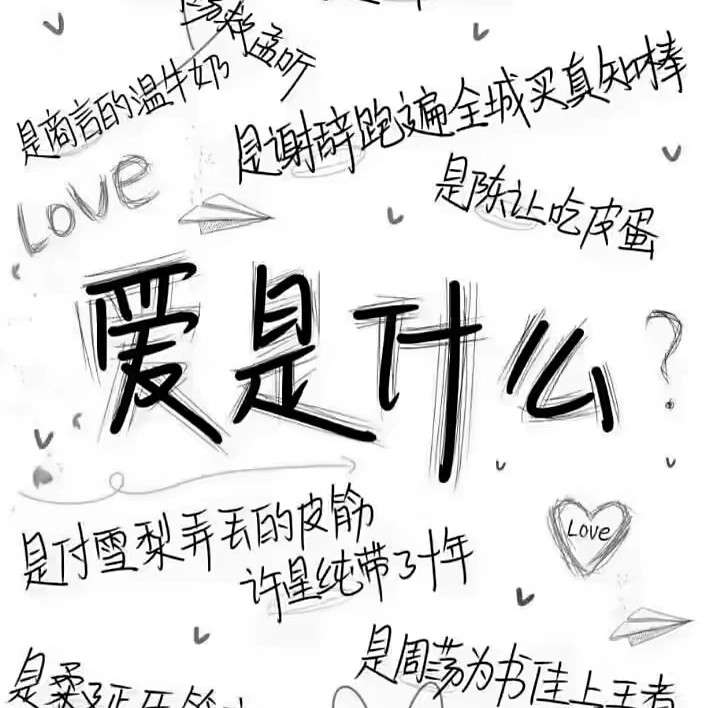 孟听
是商言的温牛奶
是谢辞跑遍全城买真知棒
Love
是陈让吃皮蛋
爱是什么?
是付雪梨弄丢的皮筋
许星纯带了十年
Love
是周荡为书佳上王者
是桑延